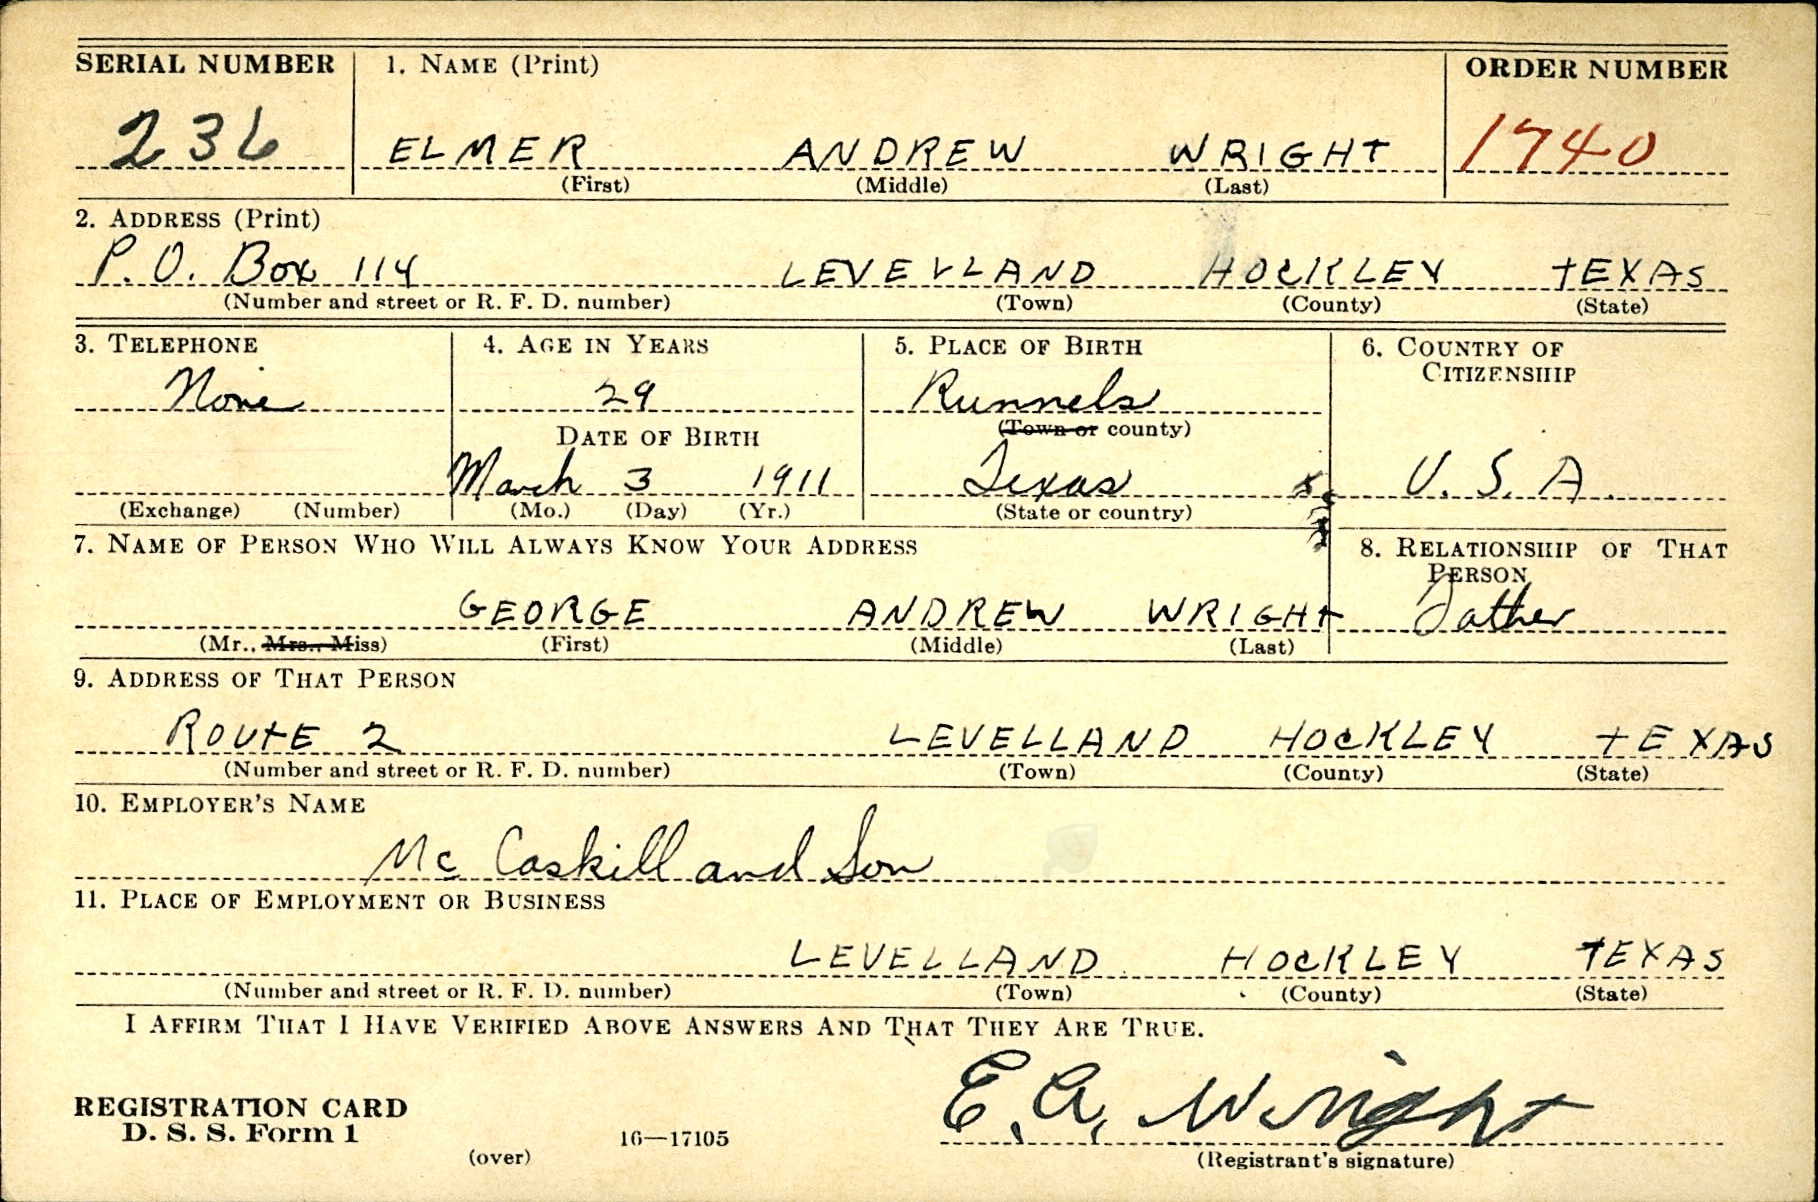 SERIAL NUMBER 1. NAME (Print) ORDER NUMBER
236 ELMER ANDREW WRIGHT 1740
(First) (Middle) (Last)
2. ADDRESS (Print)
P. O. Box 114 LEVELLAND HOCKLEY TEXAS
(Number and street or R. F. D. number) (Town) (County) (State)
3. TELEPHONE 4. AGE IN YEARS 5. PLACE OF BIRTH 6. COUNTRY OF
CITIZENSHIP
None 29 Runnels
DATE OF BIRTH (Town or county)
March 3 1911 Texas U. S. A.
(Exchange) (Number) (Mo.) (Day) (Yr.) (State or country)
7. NAME OF PERSON WHO WILL ALWAYS KNOW YOUR ADDRESS 8. RELATIONSHIP OF THAT
PERSON
GEORGE ANDREW WRIGHT Father
(Mr., Mrs., Miss) (First) (Middle) (Last)
9. ADDRESS OF THAT PERSON
ROUTE 2 LEVELLAND HOCKLEY TEXAS
(Number and street or R. F. D. number) (Town) (County) (State)
10. EMPLOYER'S NAME
Mc Caskill and Son
11. PLACE OF EMPLOYMENT OR BUSINESS
LEVELLAND HOCKLEY TEXAS
(Number and street or R. F. D. number) (Town) (County) (State)
I AFFIRM THAT I HAVE VERIFIED ABOVE ANSWERS AND THAT THEY ARE TRUE.
E. A. Wright
REGISTRATION CARD
D. S. S. Form 1 16—17105
(over) (Registrant's signature)